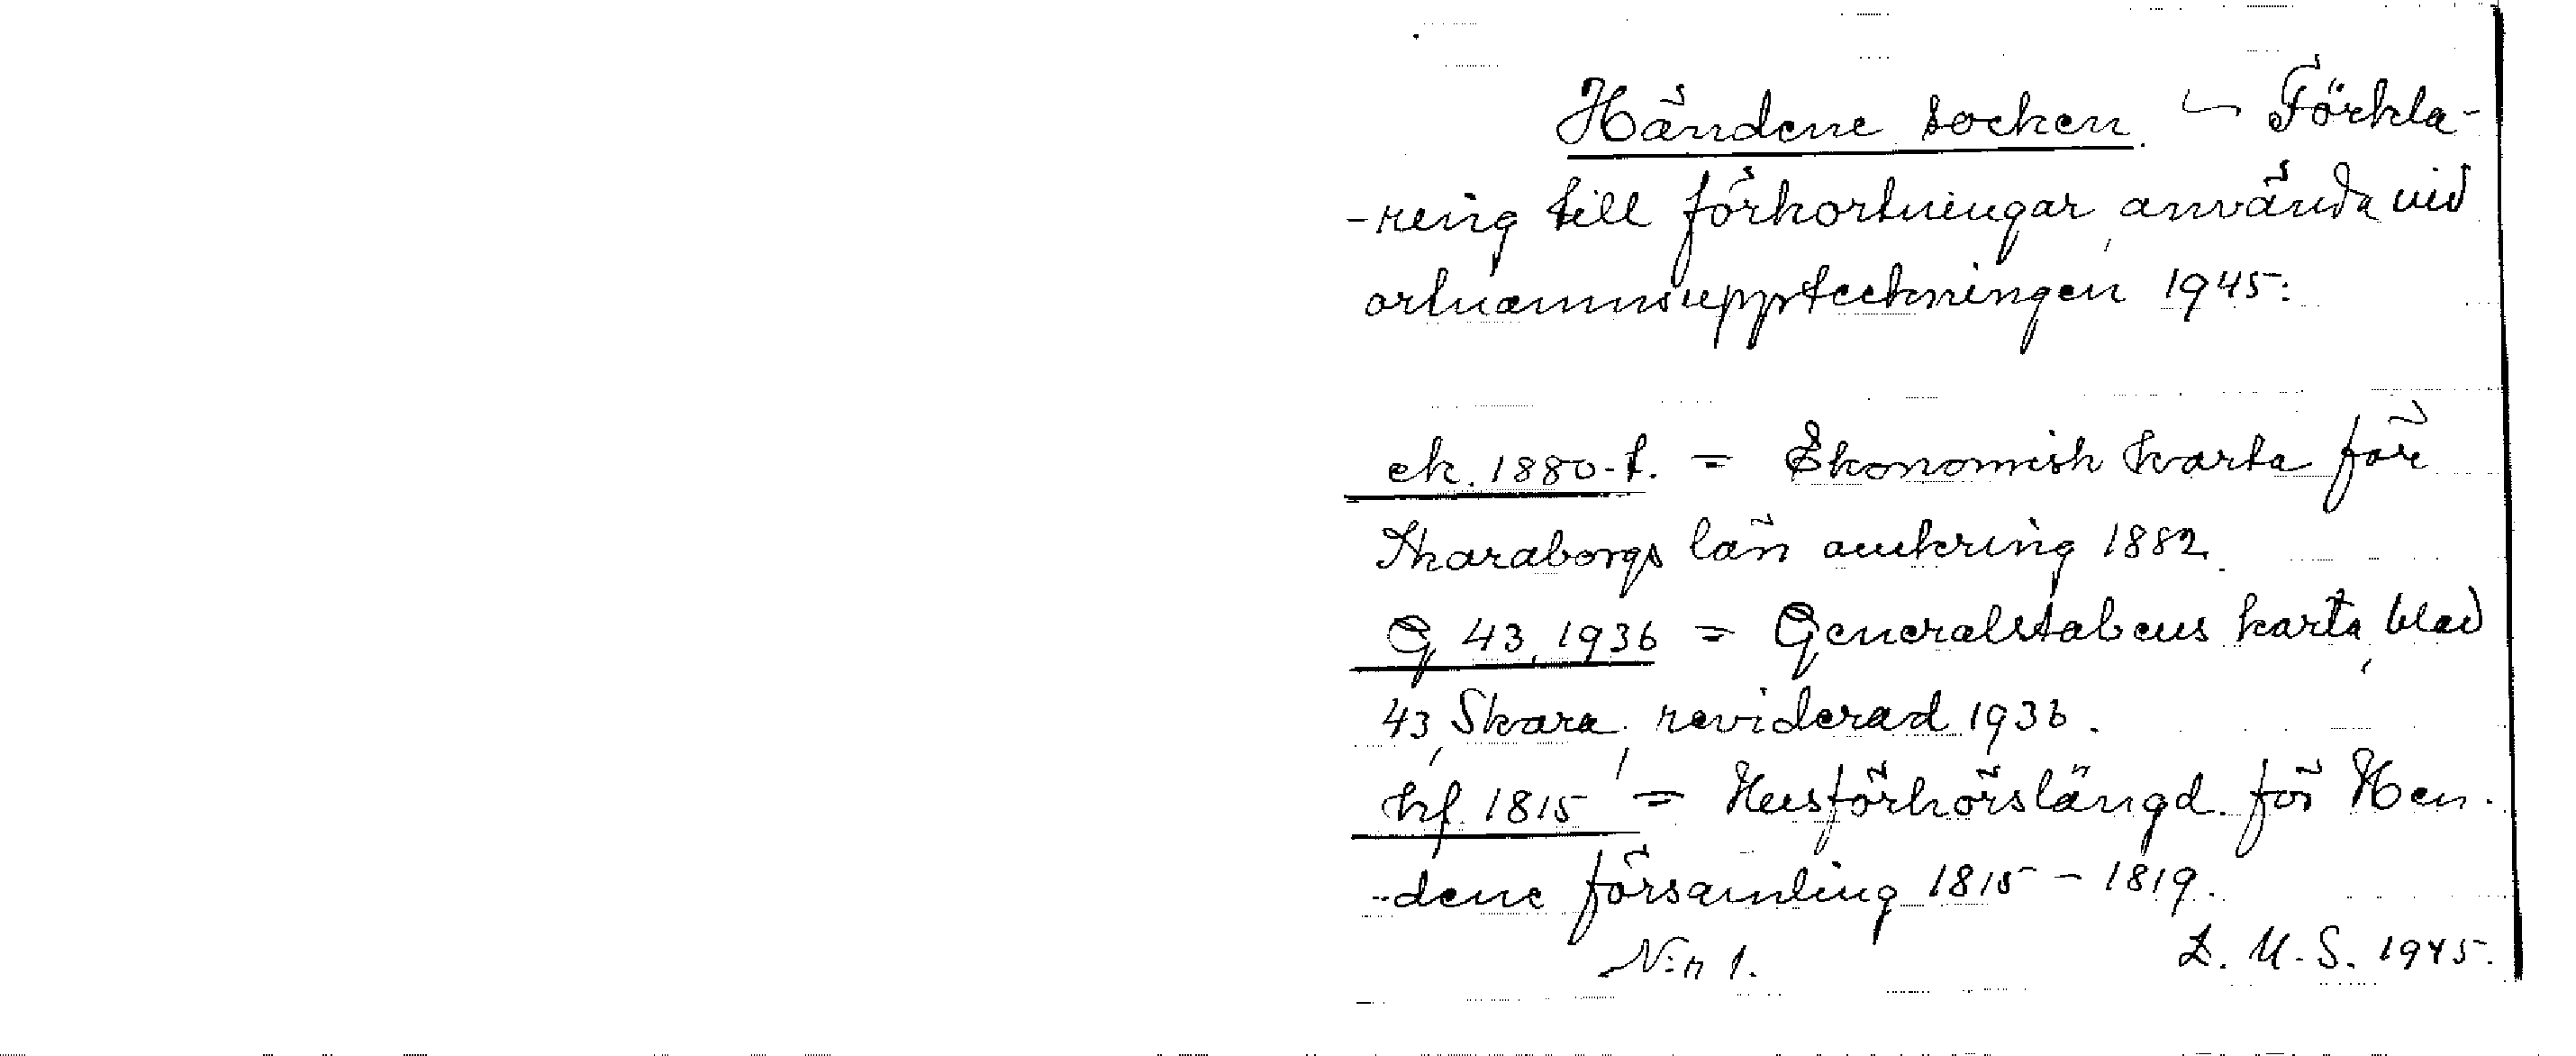 Händene socken. – Förkla-
-ring till förkortningar, använda vid
ortnamnsuppteckningen 1945:
ek. 1880-t. = Ekonomisk karta för
Skaraborgs län omkring 1882.
G 43, 1936 = Generalstabens karta, blad
43, Skara, reviderad 1936.
hf. 1815 = Husförhörslängd för Hen-
-dene församling 1815 – 1819.
N:r 1. L. M. S. 1945.